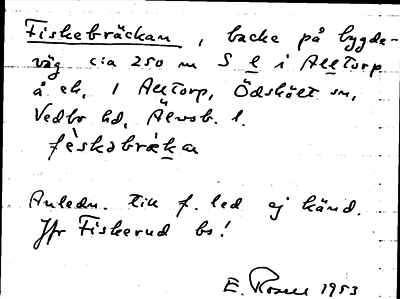 Fiskebräckan, backe på bygde-
väg c:a 250 m S l i Alltorp
å ek. 1 Alltorp, Ödskölt sn,
Vedbo hd, Älvsb. l.
fèskəbrækạ
Anledn. till f. led ej känd.
Jfr Fiskerud bs!
E. Rosell 1953